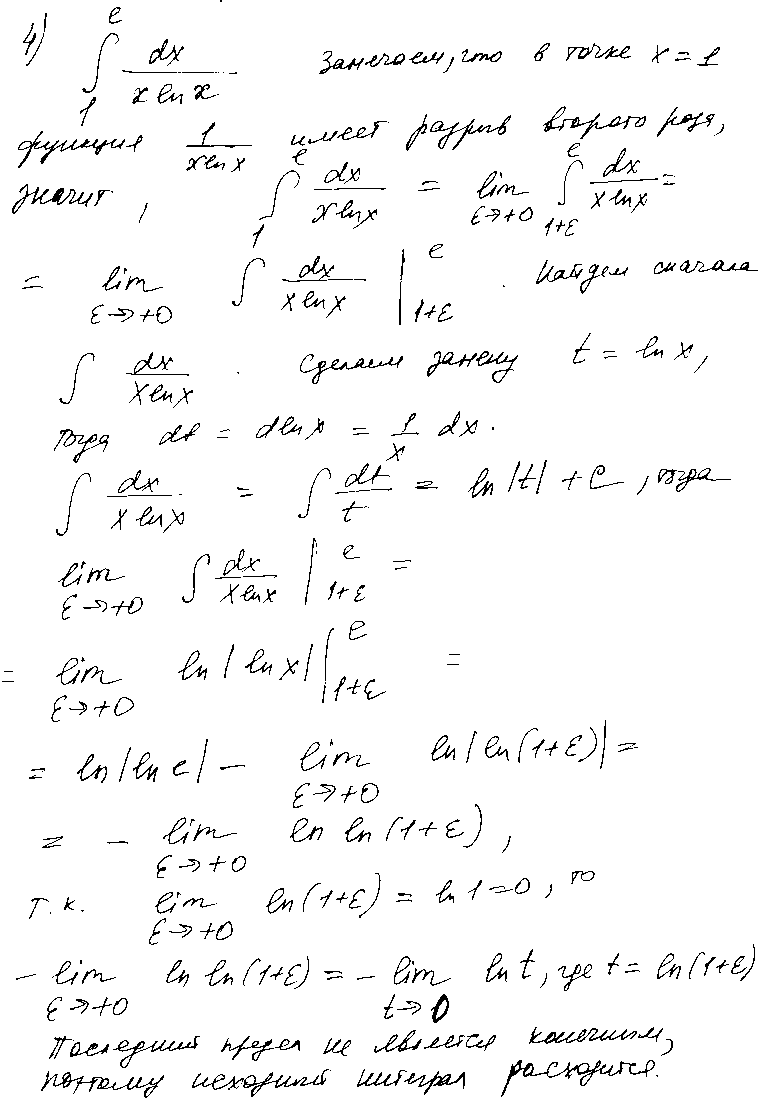 4) ∫₁^e dx/(x ln x) Замечаем, что в точке x = 1
функция 1/(x ln x) имеет разрыв второго рода,
значит, ∫₁^e dx/(x ln x) = lim_{ε→+0} ∫_{1+ε}^e dx/(x ln x) =
= lim_{ε→+0} ∫ dx/(x ln x) |_{1+ε}^e . Найдем сначала
∫ dx/(x ln x) . Сделаем замену t = ln x,
тогда dt = d ln x = 1/x dx.
∫ dx/(x ln x) = ∫ dt/t = ln|t| + C, тогда
lim_{ε→+0} ∫ dx/(x ln x) |_{1+ε}^e =
= lim_{ε→+0} ln|ln x| |_{1+ε}^e =
= ln|ln e| − lim_{ε→+0} ln|ln(1+ε)| =
= − lim_{ε→+0} ln ln(1+ε),
т.к. lim_{ε→+0} ln(1+ε) = ln 1 = 0, то
− lim_{ε→+0} ln ln(1+ε) = − lim_{t→0} ln t, где t = ln(1+ε)
Последний предел не является конечным,
поэтому исходный интеграл расходится.